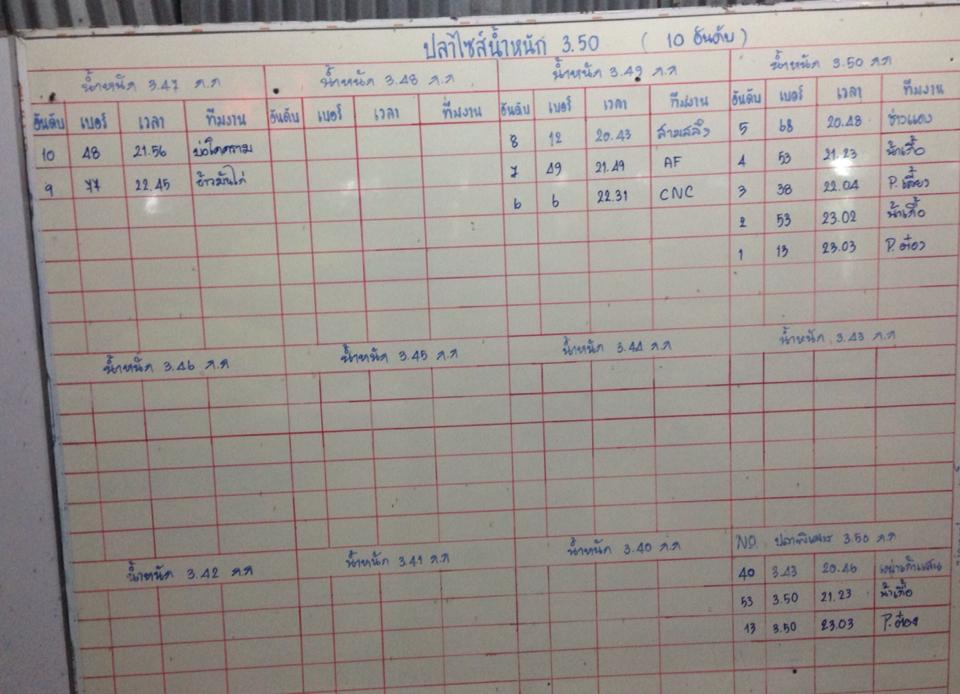 ปลาไซส์น้ำหนัก 3.50 ( 10 อันดับ )
น้ำหนัก 3.47 ก.ก
อันดับ เบอร์ เวลา ทีมงาน
10 48 21.56
9 77 22.45 ข้าวมันไก่
น้ำหนัก 3.48 ก.ก
อันดับ เบอร์ เวลา ทีมงาน
น้ำหนัก 3.49 ก.ก
อันดับ เบอร์ เวลา ทีมงาน
8 12 20.43 สามสลึง
7 49 21.49 AF
6 6 22.31 CNC
น้ำหนัก 3.50 ก.ก
อันดับ เบอร์ เวลา ทีมงาน
5 68 20.48
4 53 21.23
3 38 22.04 P.เตี้ยว
2 53 23.02
1 13 23.03 P.ต๋อง
น้ำหนัก 3.46 ก.ก
น้ำหนัก 3.45 ก.ก
น้ำหนัก 3.44 ก.ก
น้ำหนัก 3.43 ก.ก
น้ำหนัก 3.42 ก.ก
น้ำหนัก 3.41 ก.ก
น้ำหนัก 3.40 ก.ก
NO. 3.50 ก.ก
40 3.43 20.46
53 3.50 21.23
13 3.50 23.03 P.ต๋อง